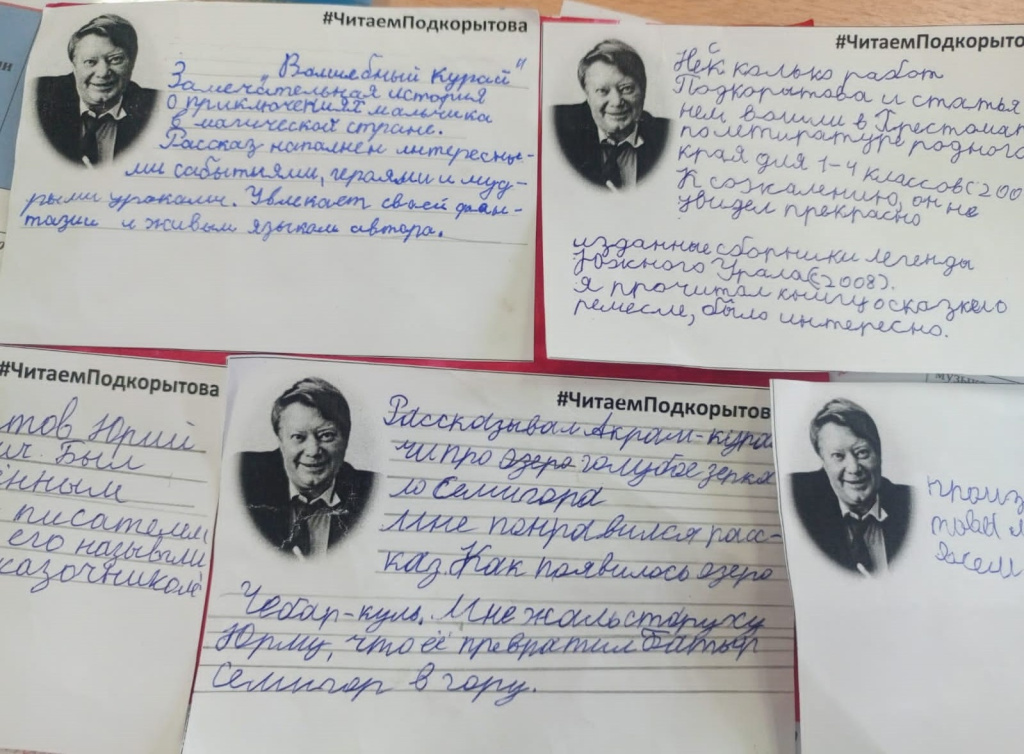 #ЧитаемПодкорытова
"Волшебный курай"
Замечательная история
о приключениях мальчика
в магической стране.
Рассказ наполнен интересны-
ми событиями, героями и муд-
рыми уроками. Увлекает своей фан-
тазии и живым языком автора.
#ЧитаемПодкорыто
Нес колько работ
Подкорытова и статья
нём вошли в Хрестомат
политиратуре родного
края для 1-4 классов (200
К сожалению, он не
увидел прекрасно
изданные сборники легенды
Южного Урала (2008).
я прочитал книгу о сказкего
ремесле, было интересно.
#ЧитаемПодкорытова
тов Юрий
ич. Был
енным
писателем
его называли
казочником"
#ЧитаемПодкорытов
Рассказывал Акрам-кура
чи про озеро голубое зерка
ло Семигора
Мне понравился расс-
каз. Как появилось озеро
Чебар-куль. Мне жаль старуху
Юрму, что её превратил Батыр
Семигор в гору.
произ
товы